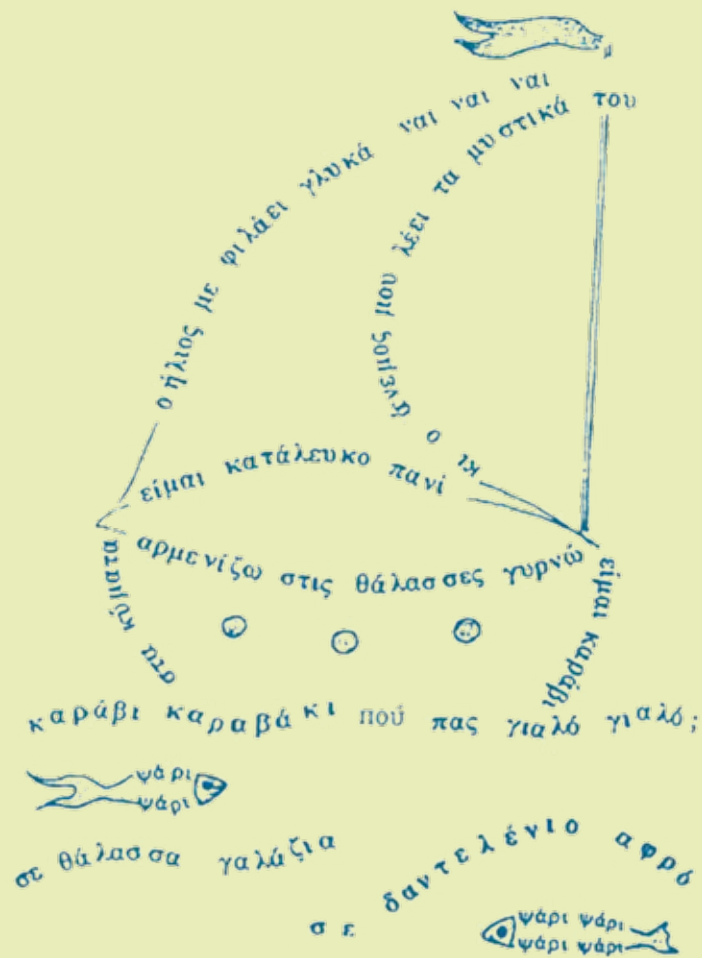 ο ήλιος με φιλάει γλυκά ναι ναι ναι
κι ο άνεμος μου λέει τα μυστικά του
είμαι κατάλευκο πανί
αρμενίζω στις θάλασσες γυρνώ
στα κύματα
είμαι καράβι
καράβι καραβάκι πού πας γιαλό γιαλό;
ψάρι
ψάρι
σε θάλασσα γαλάζια
σε δαντελένιο αφρό
ψάρι ψάρι
ψάρι ψάρι